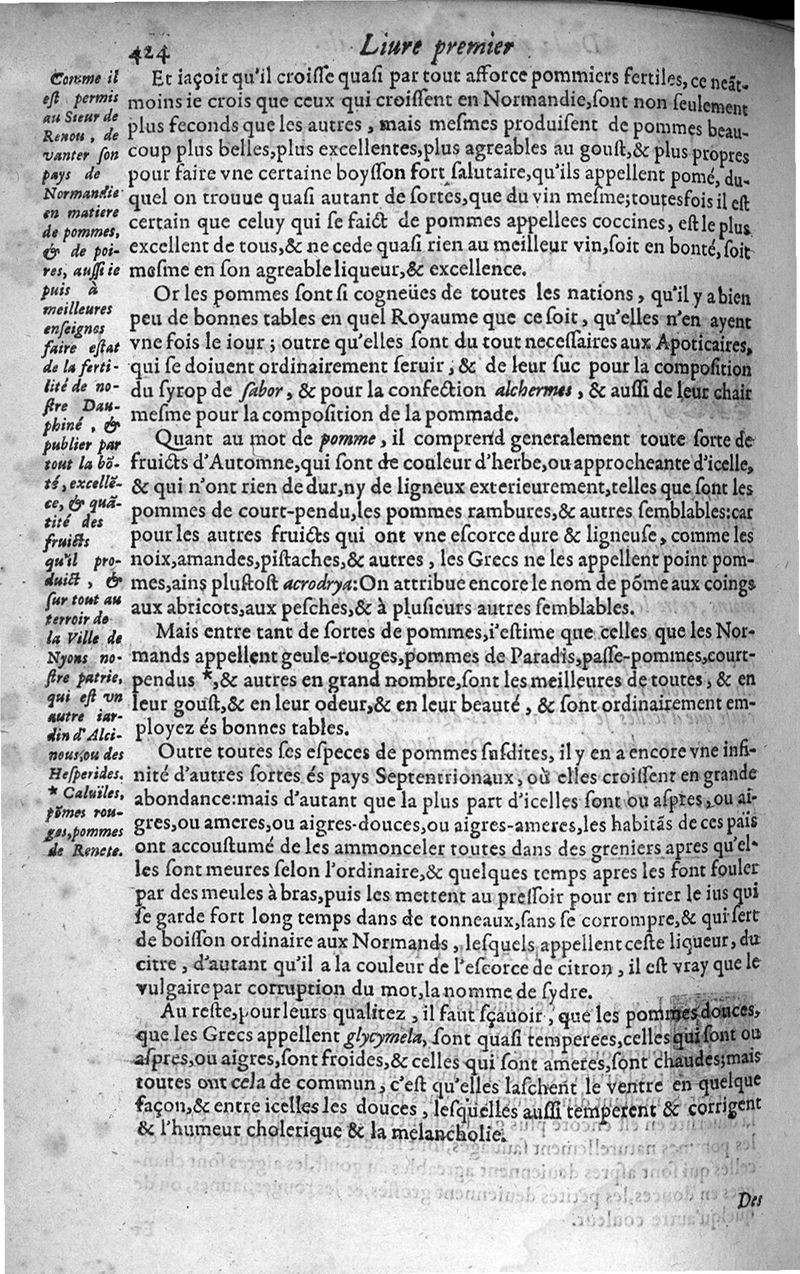 424
Liure premier
Comme il
est permis
au Sieur de
Renou, de
vanter son
pays de
Normandie
en matiere
de pommes,
& de poi-
res, aussi ie
puis à
meilleures
enseignes
faire estat
de la ferti-
lité de no-
stre Dau-
phiné, &
publier par
tout la bõ-
té, excellē-
ce, & quã-
tité des
fruicts
qu'il pro-
duict, &
sur tout au
terroir de
la Ville de
Nyons no-
stre patrie,
qui est vn
autre iar-
din d'Alci-
nous, ou des
Hesperides.
* Caluiles,
põmes rou-
ges, pommes
de Renete.
Et iaçoit qu'il croisse quasi par tout afforce pommiers fertiles, ce neãt-
moins ie crois que ceux qui croissent en Normandie, sont non seulement
plus feconds que les autres, mais mesmes produisent de pommes beau-
coup plus belles, plus excellentes, plus agreables au goust, & plus propres
pour faire vne certaine boysson fort salutaire, qu'ils appellent pomé, du-
quel on trouue quasi autant de sortes, que du vin mesme; toutesfois il est
certain que celuy qui se faict de pommes appellees coccines, est le plus
excellent de tous, & ne cede quasi rien au meilleur vin, soit en bonté, soit
mesme en son agreable liqueur, & excellence.
Or les pommes sont si cogneües de toutes les nations, qu'il y a bien
peu de bonnes tables en quel Royaume que ce soit, qu'elles n'en ayent
vne fois le iour; outre qu'elles sont du tout necessaires aux Apoticaires,
qui se doiuent ordinairement seruir, & de leur suc pour la composition
du syrop de sabor, & pour la confection alchermes, & aussi de leur chair
mesme pour la composition de la pommade.
Quant au mot de pomme, il comprend generalement toute sorte de
fruicts d'Automne, qui sont de couleur d'herbe, ou approcheante d'icelle,
& qui n'ont rien de dur, ny de ligneux exterieurement, telles que sont les
pommes de court-pendu, les pommes rambures, & autres semblables: car
pour les autres fruicts qui ont vne escorce dure & ligneuse, comme les
noix, amandes, pistaches, & autres, les Grecs ne les appellent point pom-
mes, ains plustost acrodrya: On attribue encore le nom de põme aux coings
aux abricots, aux pesches, & à plusieurs autres semblables.
Mais entre tant de sortes de pommes, i'estime que celles que les Nor-
mands appellent geule-rouges, pommes de Paradis, passe-pommes, court-
pendus *, & autres en grand nombre, sont les meilleures de toutes, & en
leur goust, & en leur odeur, & en leur beauté, & sont ordinairement em-
ployez és bonnes tables.
Outre toutes ses especes de pommes susdites, il y en a encore vne infi-
nité d'autres sortes és pays Septentrionaux, où elles croissent en grande
abondance: mais d'autant que la plus part d'icelles sont ou aspres, ou ai-
gres, ou ameres, ou aigres-douces, ou aigres-ameres, les habitãs de ces païs
ont accoustumé de les ammonceler toutes dans des greniers apres qu'el-
les sont meures selon l'ordinaire, & quelques temps apres les font fouler
par des meules à bras, puis les mettent au pressoir pour en tirer le ius qui
se garde fort long temps dans de tonneaux, sans se corrompre, & qui sert
de boisson ordinaire aux Normands, lesquels appellent ceste liqueur, du
citre, d'autant qu'il a la couleur de l'escorce de citron, il est vray que le
vulgaire par corruption du mot, la nomme de sydre.
Au reste, pour leurs qualitez, il faut sçauoir, que les pommes douces,
que les Grecs appellent glycymela, sont quasi temperees, celles qui sont ou
aspres, ou aigres, sont froides, & celles qui sont ameres, sont chaudes; mais
toutes ont cela de commun, c'est qu'elles laschent le ventre en quelque
façon, & entre icelles les douces, lesquelles aussi temperent & corrigent
& l'humeur cholerique & la melancholie.
Des